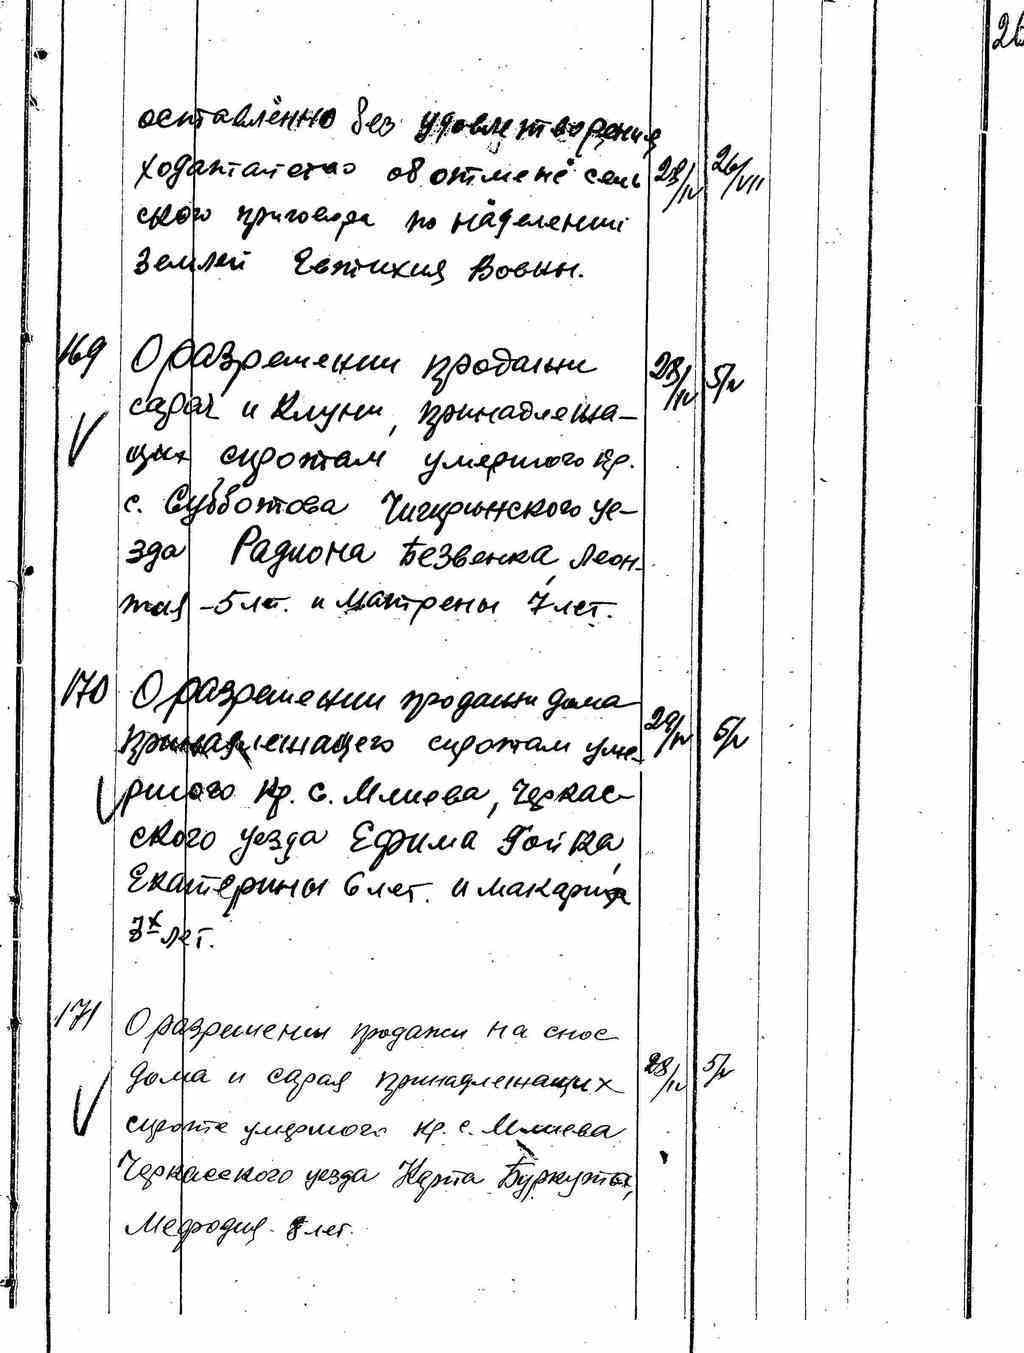 26
оставлённо без удовлетворения
ходатайство об отмене сель 28/IV 26/VII
ского приговора по наделении
землей Евтихия Вовкы.
169 О разрешении продажи 28/IV 5/V
сарая и клуни, принадлежа-
щих сиротам умершого кр.
с. Субботова Чигиринского уе-
зда Радиона Безвенка, Леон-
тия - 5 лет. и Матрены 7 лет.
170 О разрешении продажи дома
принадлежащего сиротам уме- 29/IV 5/V
ршого кр. с. Млиева, Черкас-
ского уезда Ефима Гойка,
Екатерины 6 лет. и Макария
3х лет.
171 О разрешении продажи на снос
дома и сарая принадлежащих 28/IV 5/V
сироте умершого кр. с. Млиева
Черкасского уезда Карпа Буркута,
Мефодия - 8 лет.